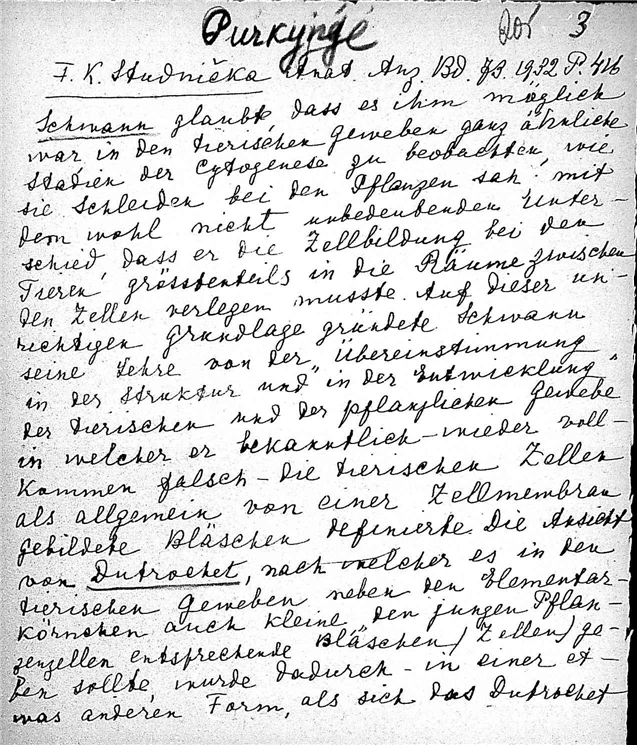 Purkyňě 3
F. K. Studnička Anat. Anz. Bd. 73. 1932 P. 416
Schwann glaubte, dass es ihm möglich
war in den tierischen Geweben ganz ähnliche
Stadien der Cytogenese zu beobachten, wie
sie Schleiden bei den Pflanzen sah, mit
dem wohl nicht unbedeutenden Unter-
schied, dass er die Zellbildung bei den
Tieren, grösstenteils in die Räume zwischen
den Zellen verlegen musste. Auf dieser un-
richtigen Grundlage gründete Schwann
seine Lehre von der „Übereinstimmung
in der Struktur und in der Entwicklung"
der tierischen und der pflanzlichen Gewebe
in welcher er bekanntlich – wieder voll-
kommen falsch – die tierischen Zellen
als allgemein von einer Zellmembran
gebildete Bläschen definierte. Die Ansicht
von Dutrochet, nach welcher es in den
tierischen Geweben neben den Elementar-
körnchen auch kleine, den jungen Pflan-
zenzellen entsprechende Bläschen (Zellen) ge-
ben sollte, wurde dadurch – in einer et-
was anderen Form, als sich das Dutrochet